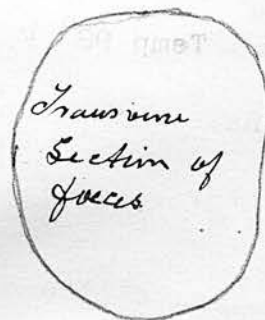 Transverse
Section of
foeces